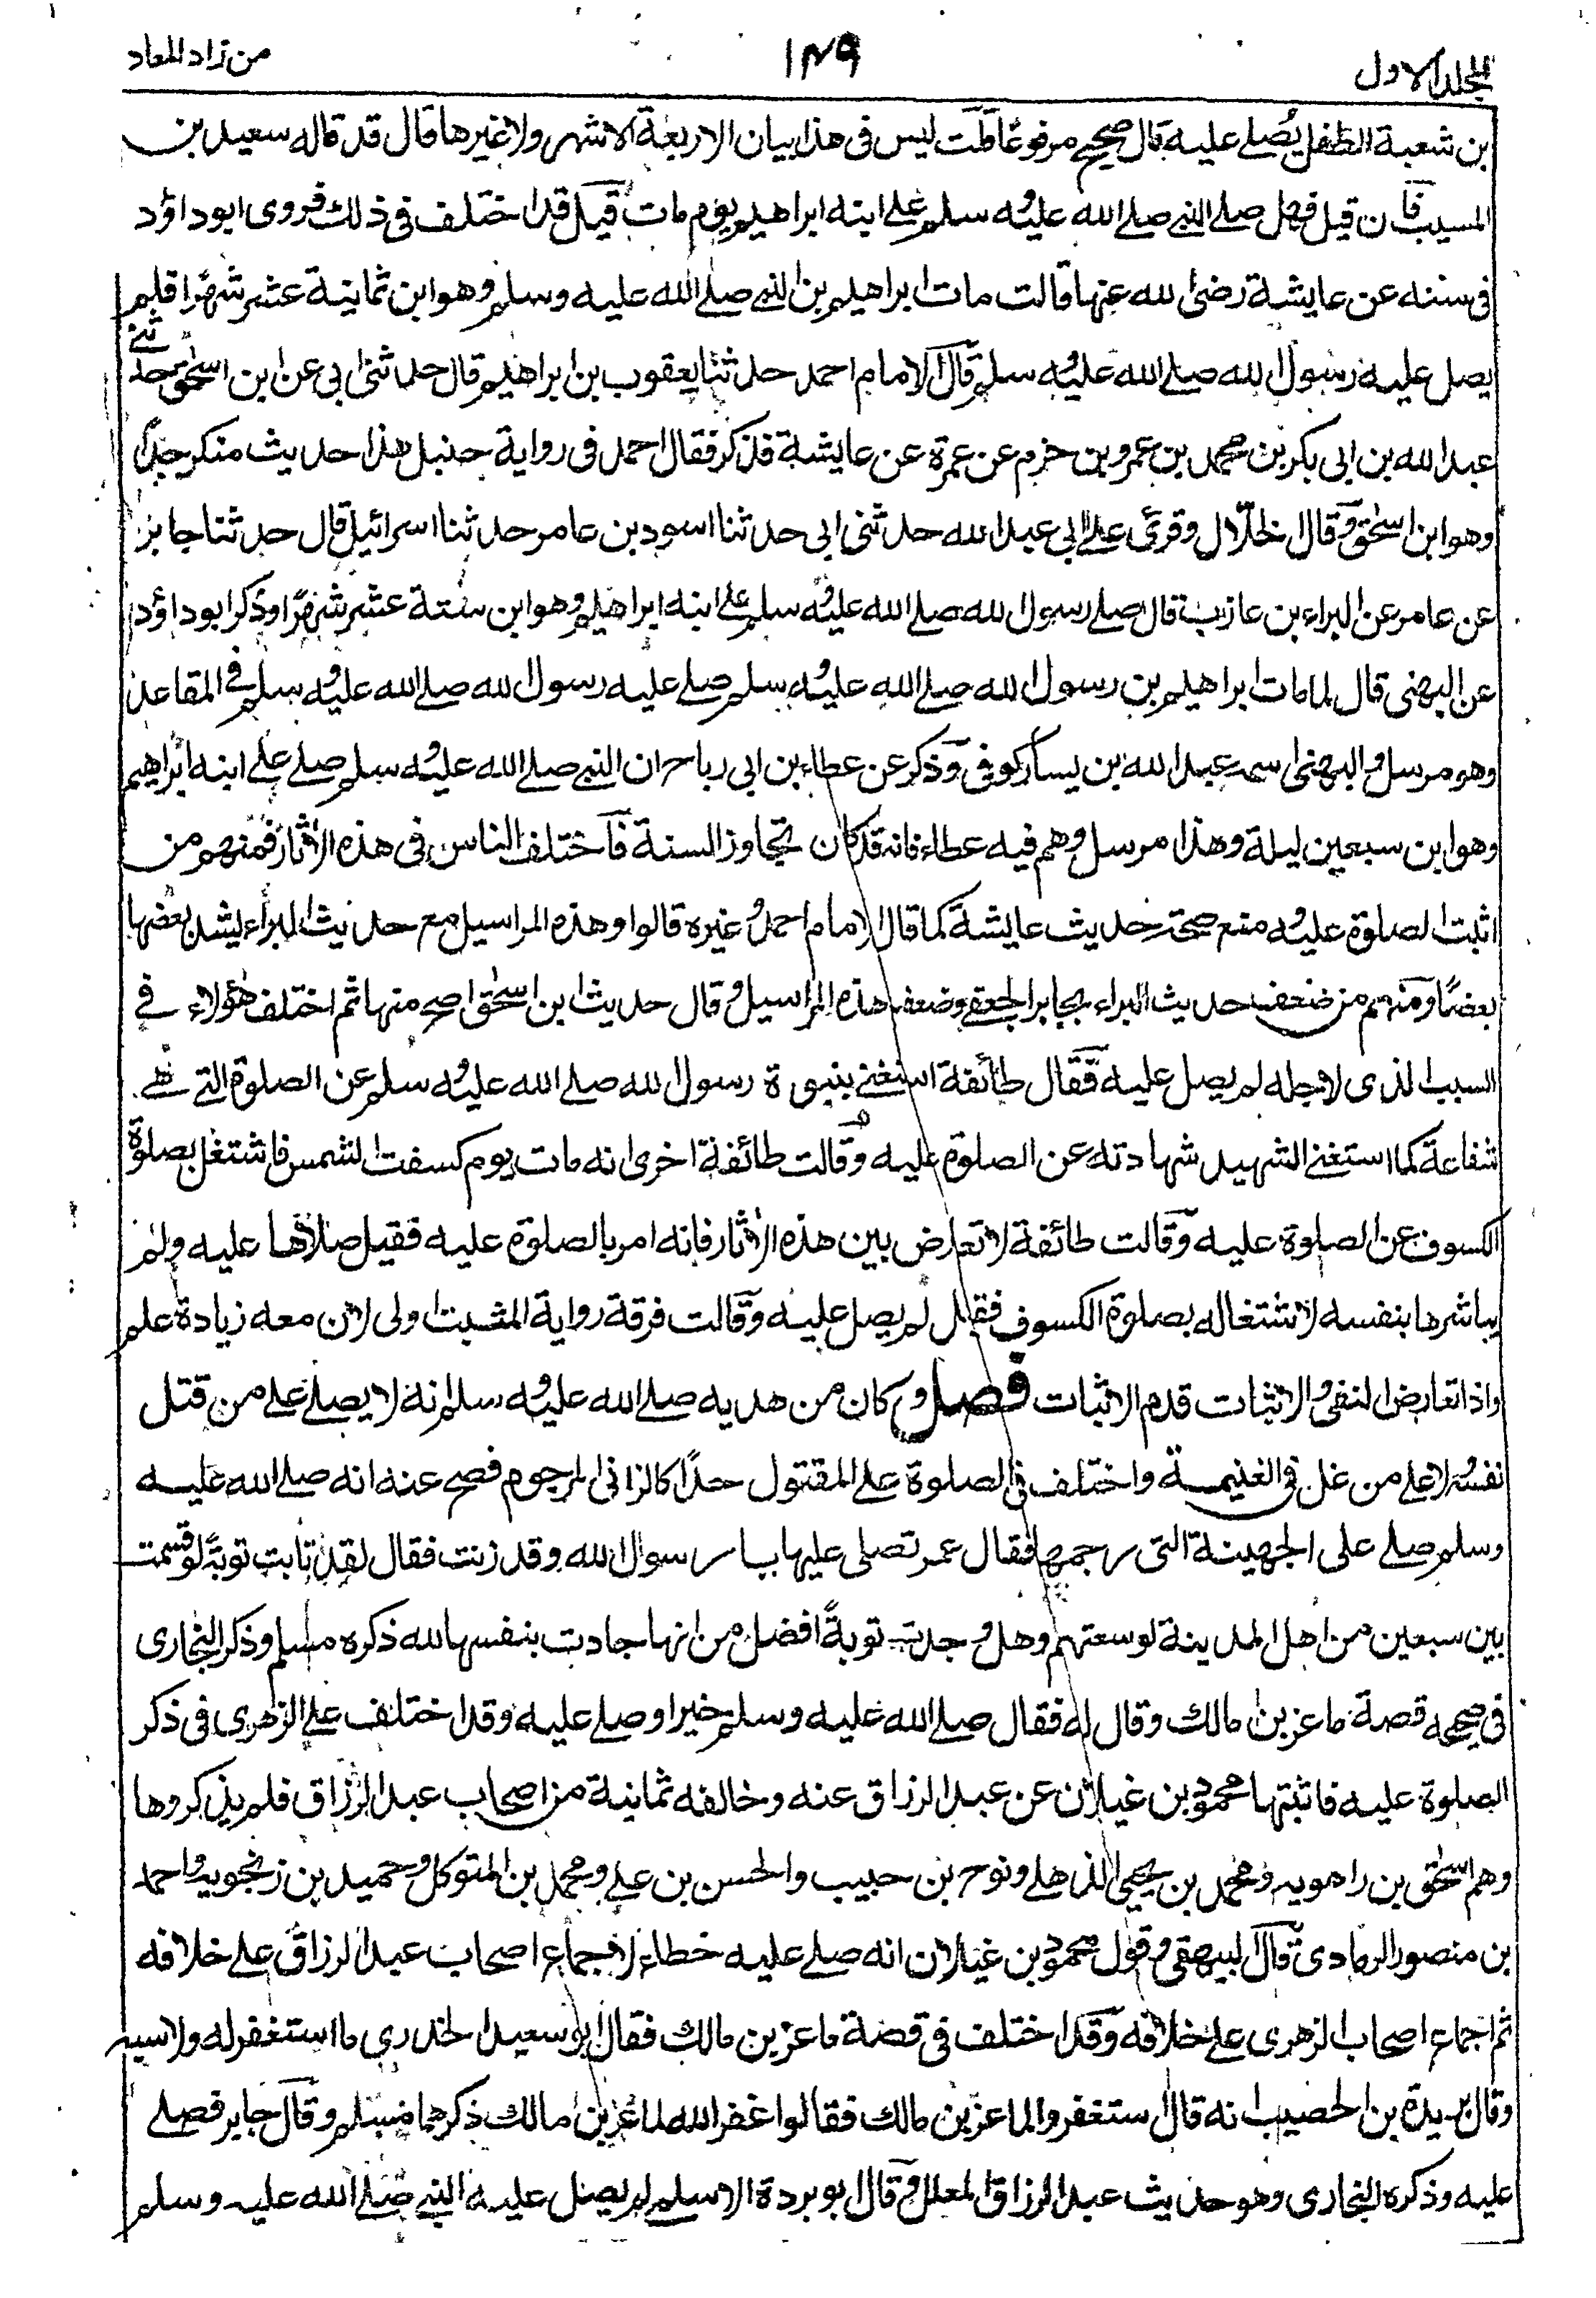 المجلد الاول
١٤٩
من زاد المعاد
بن شعبة الطفل يُصلے عليه قال صحيح مرفوعًا قلت ليس فى هذا بيان الاربعة الاشهر ولا غيرها قال قد قاله سعيد بن
المسيب فان قيل فهل صلے النبے صلے الله عليه وسلم علے ابنه ابراهيم يوم مات قيل قد اختلف فى ذلك فروى ابوداؤد
فى سننه عن عايشة رضى الله عنها قالت مات ابراهيم بن النبے صلے الله عليه وسلم وهو ابن ثمانية عشر شهرًا فلم
يصل عليه رسول الله صلے الله عليه وسلم قال الامام احمد حدثنا يعقوب بن ابراهيم قال حدثنى ابى عن ابن اسحٰق حدثنے
عبد الله بن ابى بكر بن محمد بن عمرو بن حزم عن عمرة عن عايشة فذكر فقال احمد فى رواية حنبل هذا حديث منكر جدًّا
وهو ابن اسحٰق وقال الخلّال وقرئ علے ابى عبد الله حدثنى ابى حدثنا اسود بن عامر حدثنا اسرائيل قال حدثنا جابر
عن عامر عن البراء بن عازب قال صلے رسول الله صلے الله عليه وسلم علے ابنه ابراهيم وهو ابن ستة عشر شهرًا وذكر ابوداؤد
عن البهنى قال لما مات ابراهيم بن رسول الله صلے الله عليه وسلم صلے عليه رسول الله صلے الله عليه وسلم فے المقاعد
وهو مرسل والبهنى اسمه عبد الله بن يسار كوفى وذكر عن عطاء بن ابى رباح ان النبے صلے الله عليه وسلم صلے علے ابنه ابراهيم
وهو ابن سبعين ليلة وهذا مرسل وهم فيه عطاء فانه قد كان تجاوز السنة فاختلف الناس فى هذه الاٰثار فمنهم من
اثبت الصلوة عليه ومنع صحة حديث عايشة كما قال الامام احمد وغيره قالوا وهذه المراسيل مع حديث البراء يشد بعضها
بعضًا ومنهم من ضعف حديث البراء بجابر الجعفے وضعف هذه المراسيل وقال حديث ابن اسحٰق اصح منها ثم اختلف هؤلاء فے
السبب الذى لاجله لم يصل عليه فقال طائفة استغنے بنبوة رسول الله صلے الله عليه وسلم عن الصلوة التے هے
شفاعة كما استغنے الشهيد شهادته عن الصلوة عليه وقالت طائفة اخرى انه مات يوم كسفت الشمس فاشتغل بصلوة
الكسوف عن الصلوة عليه وقالت طائفة لا تعارض بين هذه الاٰثار فانه امر بالصلوة عليه فقيل صلاها عليه ولم
يباشرها بنفسه لاشتغاله بصلوة الكسوف فقيل لم يصل عليه وقالت فرقة رواية المثبت اولى لان معه زيادة علم
واذا تعارض النفى والاثبات قدم الاثبات فصل وكان من هديه صلے الله عليه وسلم انه لا يصلے علے من قتل
نفسه ولا علے من غل فى الغنيمة واختلف فى الصلوة علے المقتول حدًّا كالزانى المرجوم فصح عنه انه صلے الله عليه
وسلم صلے على الجهينة التى رجمها فقال عمر تصلى عليها يا رسول الله وقد زنت فقال لقد تابت توبةً لو قسمت
بين سبعين من اهل المدينة لوسعتهم وهل وجدت توبةً افضل من انها جادت بنفسها لله ذكره مسلم وذكر البخارى
فى صحيحه قصة ماعز بن مالك وقال له فقال صلے الله عليه وسلم خيرا وصلے عليه وقد اختلف علے الزهرى فى ذكر
الصلوة عليه فاثبتها محمود بن غيلان عن عبد الرزاق عنه وخالفه ثمانية من اصحاب عبد الرزاق فلم يذكروها
وهم اسحٰق بن راهويه ومحمد بن يحيى الذهلے ونوح بن حبيب والحسن بن علے ومحمد بن المتوكل وحميد بن زنجويه واحمد
بن منصور الرمادى قال البيهقى وقول محمود بن غيلان انه صلے عليه خطاء لاجماع اصحاب عبد الرزاق علے خلافه
ثم اجماع اصحاب الزهرى علے خلافه وقد اختلف فى قصة ماعز بن مالك فقال ابو سعيد الخدرى ما استغفر له ولا سبه
وقال بريدة بن الحصيب انه قال استغفروا لماعز بن مالك فقالوا غفر الله لماعز بن مالك ذكرهما مسلم وقال جابر فصلے
عليه وذكره البخارى وهو حديث عبد الرزاق المعلل وقال ابو بردة الاسلمے لم يصل عليه النبے صلے الله عليه وسلم